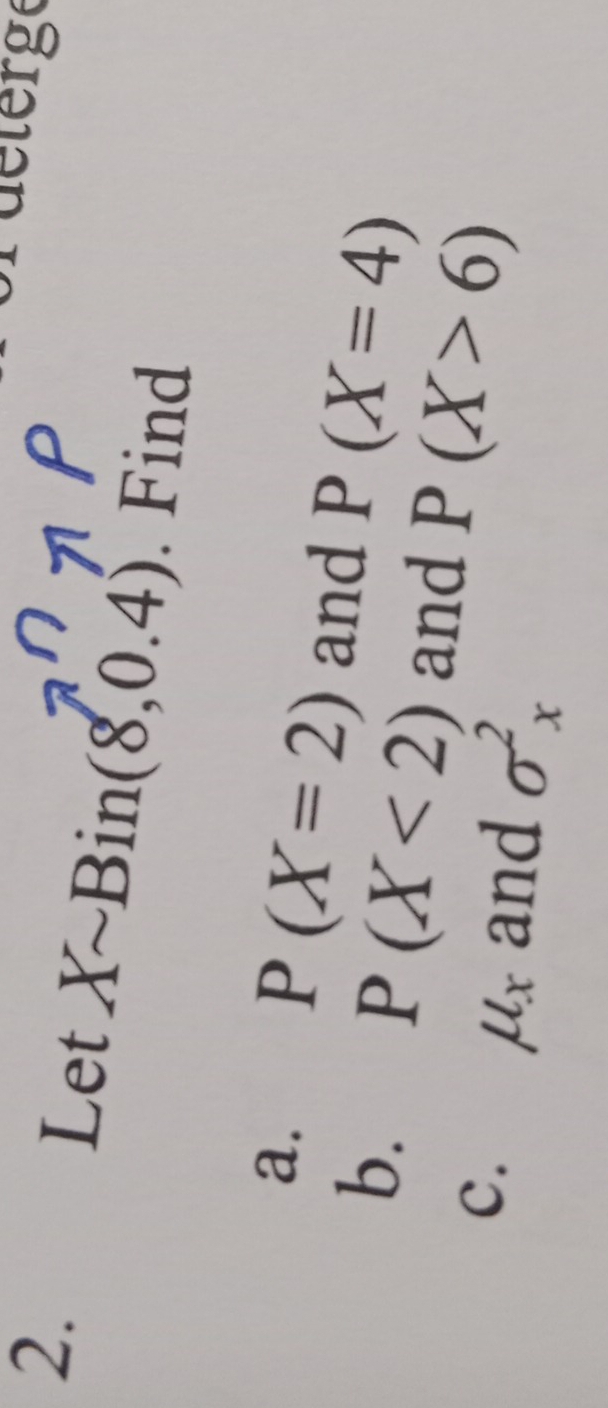 of deterge
n P
2. Let X~Bin(8,0.4). Find
a. P (X = 2) and P (X = 4)
b. P (X < 2) and P (X > 6)
c. μx and σ²x